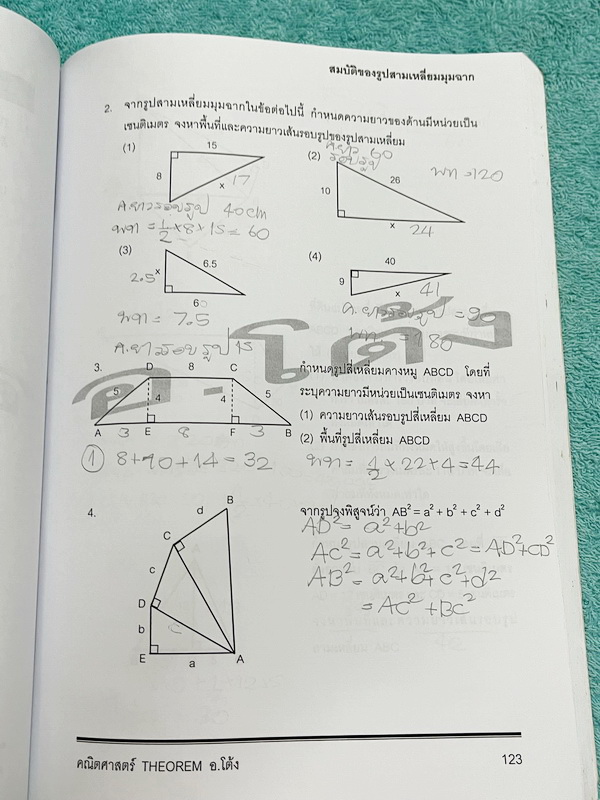 สมบัติของรูปสามเหลี่ยมมุมฉาก
2. จากรูปสามเหลี่ยมมุมฉากในข้อต่อไปนี้ กำหนดความยาวของด้านมีหน่วยเป็น
เซนติเมตร จงหาพื้นที่และความยาวเส้นรอบรูปของรูปสามเหลี่ยม
(1) 15
8
x 17
ค.ยาวรอบรูป 40 cm
พท = 1/2 × 8 × 15 = 60
(2) ค.ยาว 60
รอบรูป
26
10
x
24
พท = 120
(3)
6.5
2.5 x
6
พท = 7.5
ค.ยาวรอบรูป 15
(4)
40
9
x 41
ค.ยาวรอบรูป = 90
พท = 180
อ.โต้ง
3. D 8 C
5 4 4 5
A 3 E 8 F 3 B
① 8+10+14 = 32
กำหนดรูปสี่เหลี่ยมคางหมู ABCD โดยที่
ระบุความยาวมีหน่วยเป็นเซนติเมตร จงหา
(1) ความยาวเส้นรอบรูปสี่เหลี่ยม ABCD
(2) พื้นที่รูปสี่เหลี่ยม ABCD
พท = 1/2 × 22 × 4 = 44
4.
B
d
C
c
D
b
E a A
จากรูปจงพิสูจน์ว่า AB² = a² + b² + c² + d²
AD² = a²+b²
AC² = a²+b²+c² = AD²+CD²
AB² = a²+b²+c²+d²
= AC² + BC²
คณิตศาสตร์ THEOREM อ.โต้ง
123